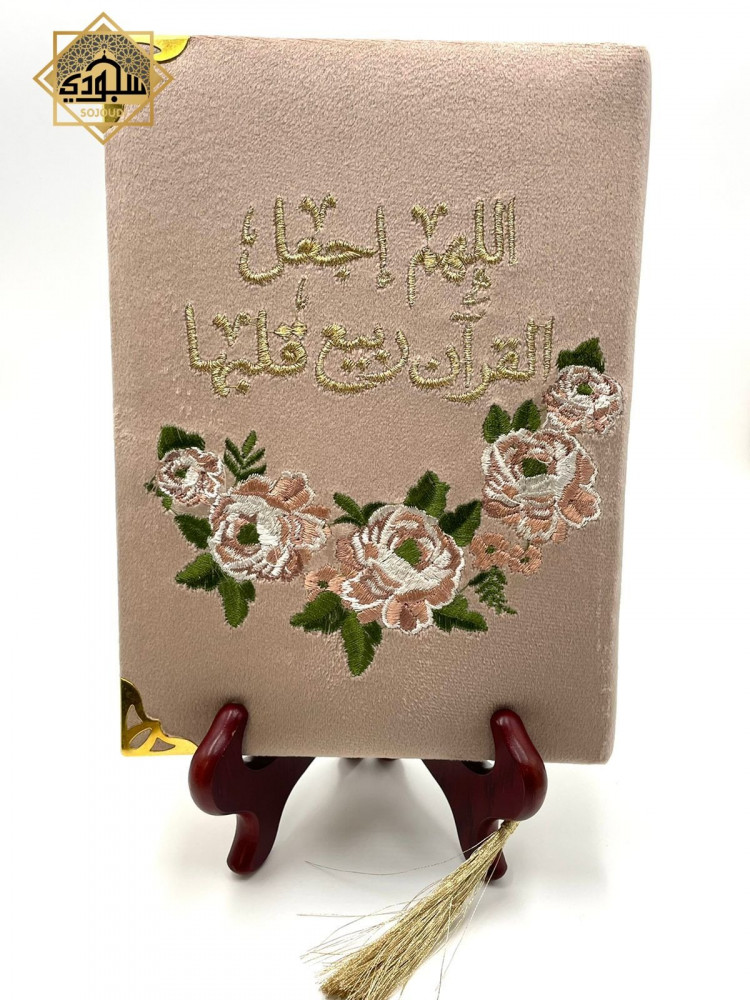 سجودي
SOJOUD
اللهم إجعل
القرآن ربيع قلبها